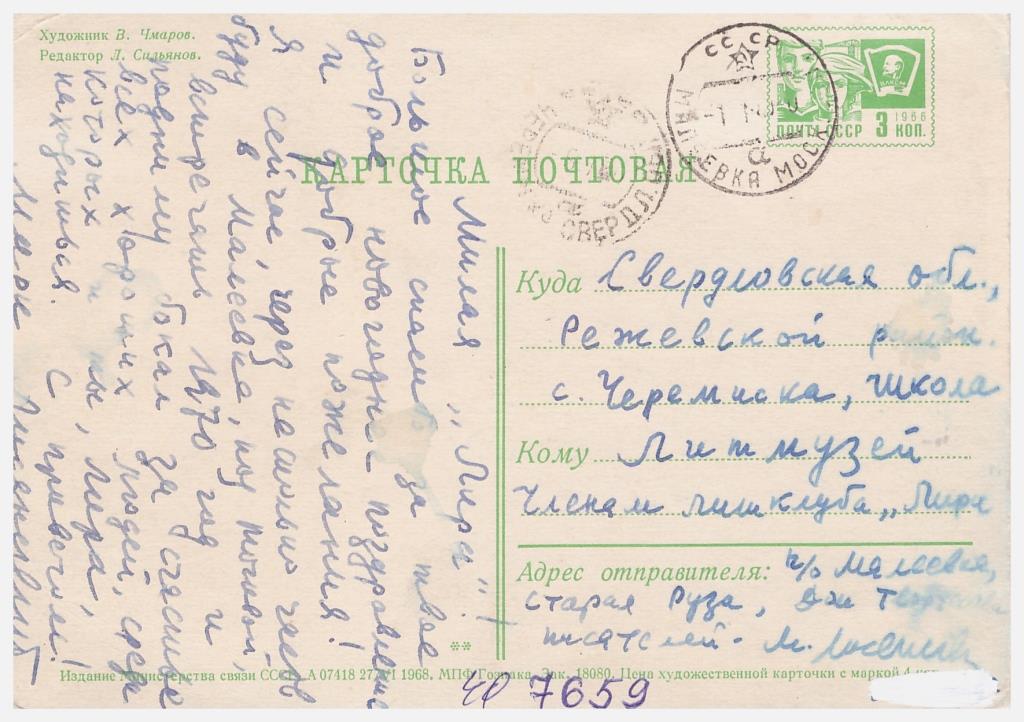 Художник В. Чмаров.
Редактор Л. Сильянов.
КАРТОЧКА ПОЧТОВАЯ
СССР
МАЛЕЕВКА МОСК
СВЕРДЛ.
ВЛКСМ
1966
ПОЧТА СССР 3 КОП.
Милая „Лира“!
Большое спасибо за твое
доброе новогоднее поздравление
и добрые пожелания!
Я сейчас через несколько часов
буду в Малеевке, под
встречать 1970 год и
подниму бокал за счастье
всех хороших людей, среди
которых и ты, Лира,
находишься. С приветом!
Марк Лисянский
Куда Свердловская обл.,
Режевской район.
с. Черемиска, школа
Кому Литмузей
Членам литклуба „Лира
Адрес отправителя: п/о Малеевка,
Старая Руза, Дом Творчества
писателей - М. Лисянский
**
Издание Министерства связи СССР. А 07418 27/VI 1968. МПФ Гознака. Зак. 18080. Цена художественной карточки с маркой 4 коп.
7659